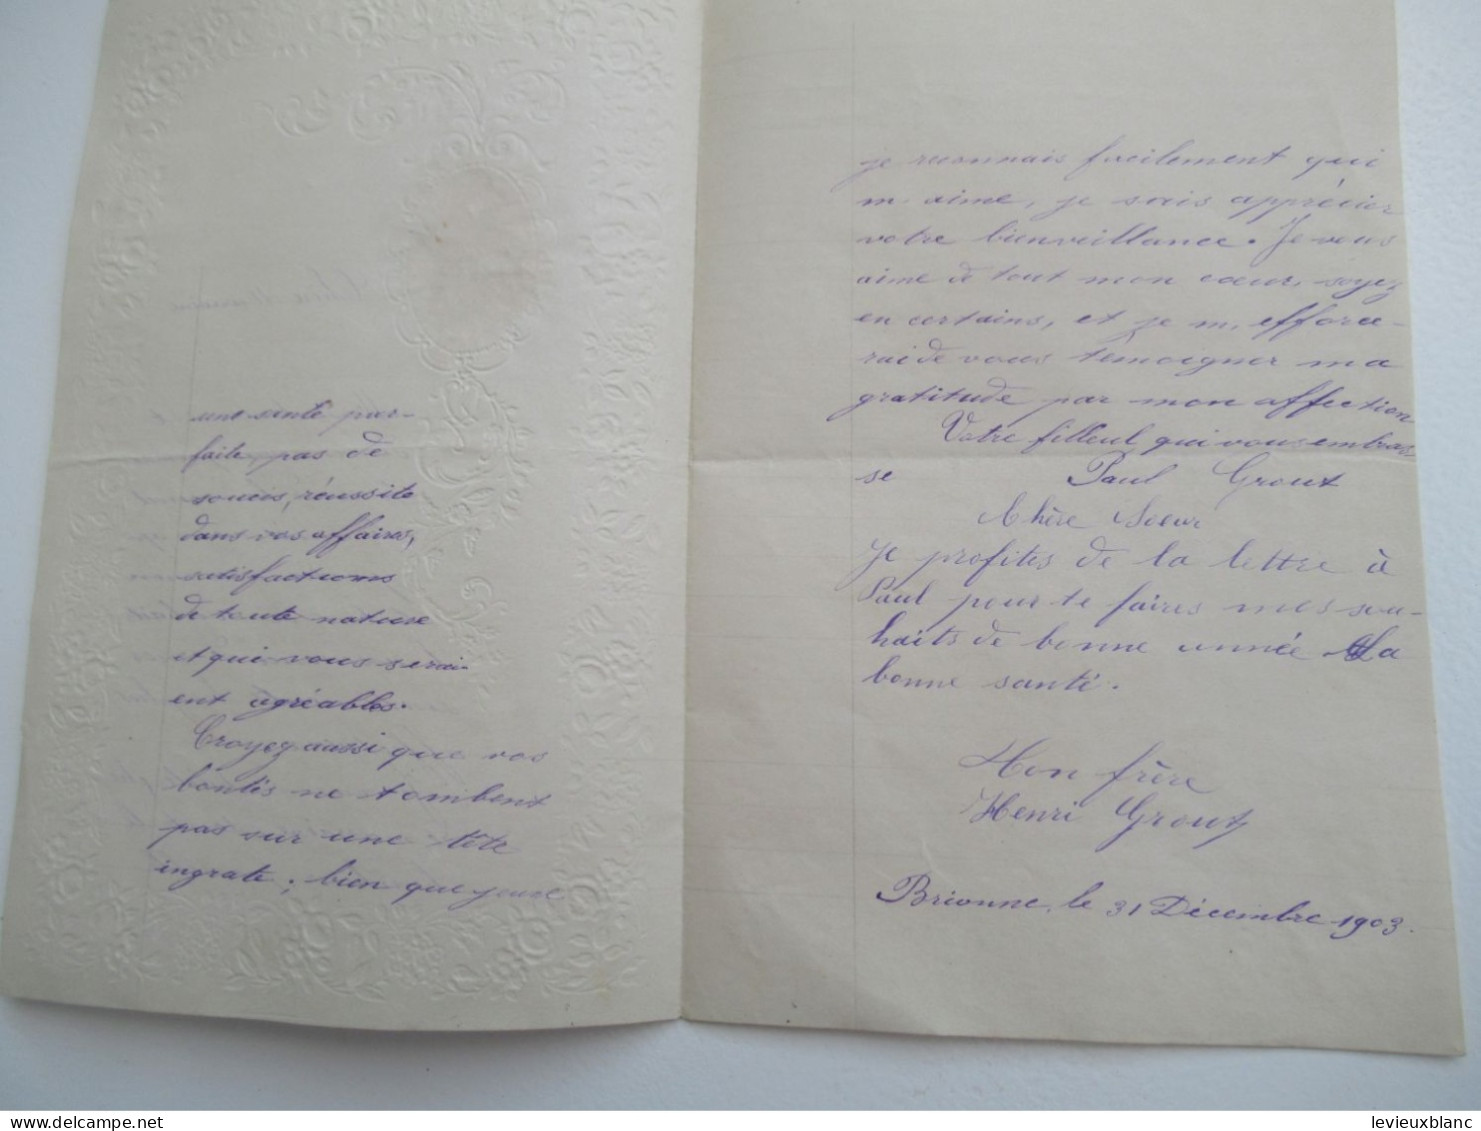 une santé par-
faite, pas de
soucis, réussite
dans vos affaires,
satisfactions
de toute nature
et qui vous serai-
ent agréables.
Croyez aussi que vos
bontés ne tombent
pas sur une tête
ingrate ; bien que jeune
je reconnais facilement qui
m'aime, je sais apprécier
votre bienveillance. Je vous
aime de tout mon cœur, soyez
en certains, et je m'efforce-
rai de vous témoigner ma
gratitude par mon affection
Votre filleul qui vous embras-
se Paul Groux
Chère Soeur
je profites de la lettre à
Paul pour te faires mes sou-
haits de bonne année La
bonne santé.
Ton frère
Henri Groux
Brionne, le 31 Décembre 1903.
levieuxblanc